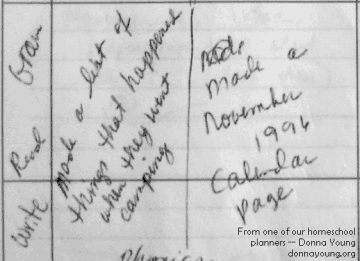 Gram
Read
Write
made a list of
things that happened
when they went
camping
made a
November
1996
Calendar
page
Phonics
From one of our homeschool
planners — Donna Young
donnayoung.org